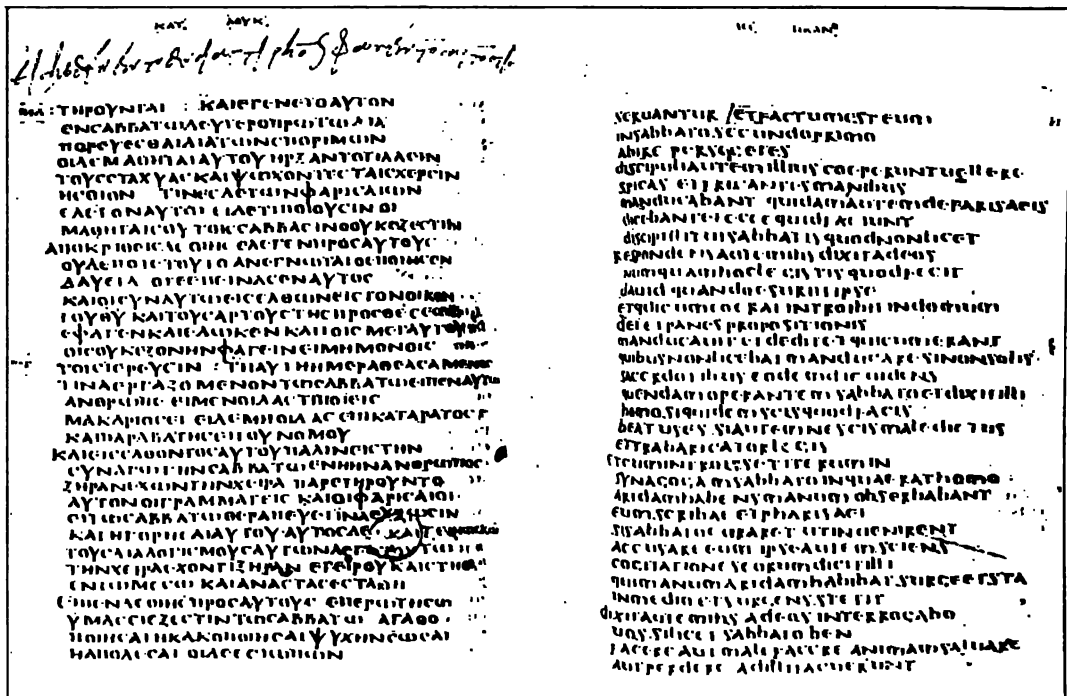 ΚΑΤ ΛΟΥΚ
ΤΗΡΟΥΝΤΑΙ : ΚΑΙΕΓΕΝΕΤΟΑΥΤΟΝ
ΕΝΣΑΒΒΑΤΩΔΕΥΤΕΡΟΠΡΩΤΩΔΙΑ
ΠΟΡΕΥΕΣΘΑΙΔΙΑΤΩΝΣΠΟΡΙΜΩΝ
ΟΙΔΕΜΑΘΗΤΑΙΑΥΤΟΥΗΡΞΑΝΤΟΤΙΛΛΕΙΝ
ΤΟΥΣΣΤΑΧΥΑΣΚΑΙΨΩΧΟΝΤΕΣΤΑΙΣΧΕΡΣΙΝ
ΗΣΘΙΟΝ ΤΙΝΕΣΔΕΤΩΝΦΑΡΙΣΑΙΩΝ
ΕΛΕΓΟΝΑΥΤΩΕΙΔΕΤΙΠΟΙΟΥΣΙΝΟΙ
ΜΑΘΗΤΑΙΣΟΥΤΟΙΣΣΑΒΒΑΣΙΝΟΟΥΚΕΞΕΣΤΙΝ
ΑΠΟΚΡΙΘΕΙΣΔΕΟΙΗΣΕΛΕΓΕΝΠΡΟΣΑΥΤΟΥΣ
ΟΥΔΕΠΟΤΕΤΟΥΤΟΑΝΕΓΝΩΤΑΙΟΕΠΟΙΗΣΕΝ
ΔΑΥΕΙΔ ΟΤΕΕΠΕΙΝΑΣΕΝΑΥΤΟΣ
ΚΑΙΟΙΣΥΝΑΥΤΩΕΙΣΕΛΘΩΝΕΙΣΤΟΝΟΙΚΟΝ
ΤΟΥΘΥ ΚΑΙΤΟΥΣΑΡΤΟΥΣΤΗΣΠΡΟΣΘΕΣΕΩΣ
ΕΦΑΓΕΝΚΑΙΕΔΩΚΕΝΚΑΙΤΟΙΣΜΕΤΑΥΤΟΥ
ΟΙΣΟΥΚΕΞΟΝΗΝΦΑΓΕΙΝΕΙΜΗΜΟΝΟΙΣ
ΤΟΙΣΙΕΡΕΥΣΙΝ : ΤΗΑΥΤΗΗΜΕΡΑΘΕΑΣΑΜΕΝΟΣ
ΤΙΝΑΕΡΓΑΖΟΜΕΝΟΝΤΩΣΑΒΒΑΤΩΕΙΠΕΝΑΥΤΩ
ΑΝΘΡΩΠΕ ΕΙΜΕΝΟΙΔΑΣΤΙΠΟΙΕΙΣ
ΜΑΚΑΡΙΟΣΕΙ ΕΙΔΕΜΗΟΙΔΑΣ ΕΠΙΚΑΤΑΡΑΤΟΣ
ΚΑΙΠΑΡΑΒΑΤΗΣΕΙΤΟΥΝΟΜΟΥ
ΚΑΙΕΙΣΕΛΘΟΝΤΟΣΑΥΤΟΥΠΑΛΙΝΕΙΣΤΗΝ
ΣΥΝΑΓΩΓΗΝΣΑΒΒΑΤΩΕΝΗΗΝΑΝΘΡΩΠΟΣ
ΞΗΡΑΝΕΧΩΝΤΗΝΧΕΙΡΑ ΠΑΡΕΤΗΡΟΥΝΤΟ
ΑΥΤΟΝΟΙΓΡΑΜΜΑΤΕΙΣ ΚΑΙΟΙΦΑΡΙΣΑΙΟΙ
ΕΙΤΩΣΑΒΒΑΤΩΘΕΡΑΠΕΥΕΙΙΝΑΕΥΡΩΣΙΝ
ΚΑΤΗΓΟΡΗΣΑΙΑΥΤΟΥΑΥΤΟΣΔΕ
ΤΟΥΣΔΙΑΛΟΓΙΣΜΟΥΣΑΥΤΩΝΛΕΓΕΙΤΩ
ΤΗΝΧΕΙΡΑΕΧΟΝΤΙΞΗΡΑΝ ΕΓΕΙΡΟΥΚΑΙΣΤΗΘΙ
ΕΝΤΩΜΕΣΩ ΚΑΙΑΝΑΣΤΑΣΕΣΤΑΘΗ
ΕΙΠΕΝΔΕΟΙΗΣΠΡΟΣΑΥΤΟΥΣ ΕΠΕΡΩΤΗΣΩ
ΥΜΑΣΕΙΕΞΕΣΤΙΝΤΩΣΑΒΒΑΤΩ ΑΓΑΘΟ
ΠΟΙΗΣΑΙΗΚΑΚΟΠΟΙΗΣΑΙΨΥΧΗΝΣΩΣΑΙ
ΗΑΠΟΛΕΣΑΙ ΟΙΔΕΕΣΙΩΠΩΝ
SEC LUCAN
seruantur / etfactumesteum
insabbatosecundoprimo
abire persegetes
discipuliautemillius coeperuntuellere
spicas etfricantesmanibus
manducabant quidamautemdefarisaeis
dicebanteiecce quidfaciunt
discipulituisabbatisquodnonlicet
respondensautemihs dixitadeos
numquamhoclegistisquodfecit
dauid quandoesuriitipse
etquicumeoerat introibit indomum
dei etpanes propositionis
manducauit etdedit etquicumerant
quibusnonlicebatmanducare sinonsolis
sacerdotibus eodemdieuidens
quendamoperantemsabbato etdixitilli
homo siquidemscisquodfacis
beatuses siautemnescismaledictus
ettrabaricatorlegis
etcumintroissetiterumin
synagogamsabbato inquaeerathomo
aridamhabensmanumobserbabant
eum scribae etpharisaei
sisabbatocuraret utinuenirent
accusareeum ipseautemsciens
cogitationeseorumdicitilli
quimanumaridamhabebat surgeetsta
inmedio etsurgensstetit
dixitautemihs adeos interrogabo
uos silicet sabbato ben
facere autmalefacere animamsaluare
autperdere adilli tacuerunt